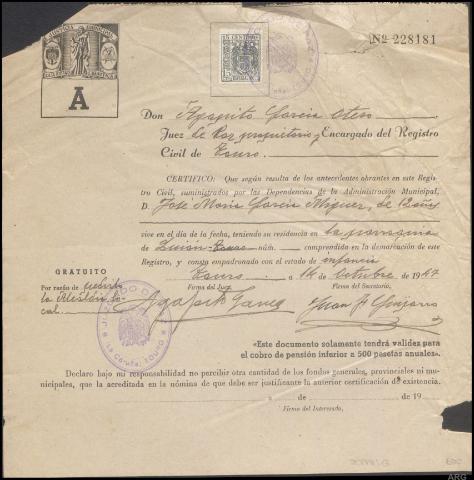 JUSTICIA MUNICIPAL
A
25 CENTIMOS
Nº 228181
Don Agapito García Otero
Juez de Paz propietario y Encargado del Registro
Civil de Touro.
CERTIFICO: Que según resulta de los antecedentes obrantes en este Regis-
tro Civil, suministrados por las Dependencias de la Administración Municipal,
D. José María García Miguez, de 12 años
vive en el día de la fecha, teniendo su residencia en la parroquia
de Touro núm. comprendida en la demarcación de este
Registro, y consta empadronado con el estado de infancia
Touro a 14 de octubre de 1947
GRATUITO
Por razón de
Firma del Juez,
Firma del Secretario,
Agapito García
Juan
JUZGADO DE PAZ
La Coruña. TOURO
«Este documento solamente tendrá validez para
el cobro de pensión inferior a 500 pesetas anuales».
Declaro bajo mi responsabilidad no percibir otra cantidad de los fondos generales, provinciales ni mu-
nicipales, que la acreditada en la nómina de que debe ser justificante la anterior certificación de existencia.
a de de 19
Firma del Interesado,
ARG